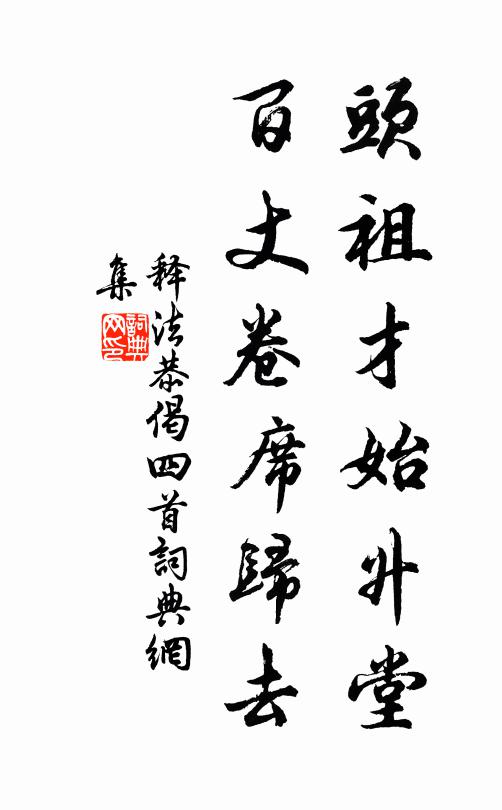 頭祖才始升堂
百丈卷席歸去
释法恭偈四首詞典網
集
詞典
网印